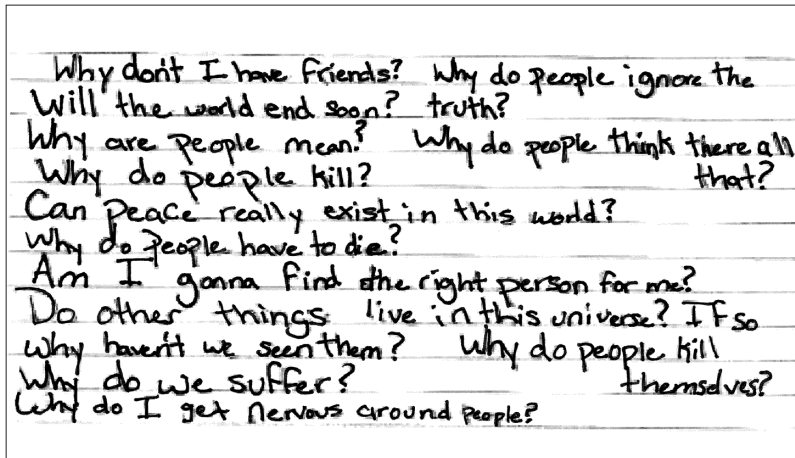 Why don't I have friends? Why do people ignore the
Will the world end soon? truth?
Why are people mean? Why do people think there all
Why do people kill? that?
Can peace really exist in this world?
Why do people have to die?
Am I gonna find the right person for me?
Do other things live in this universe? If so
why haven't we seen them? Why do people kill
Why do we suffer? themselves?
Why do I get nervous around people?